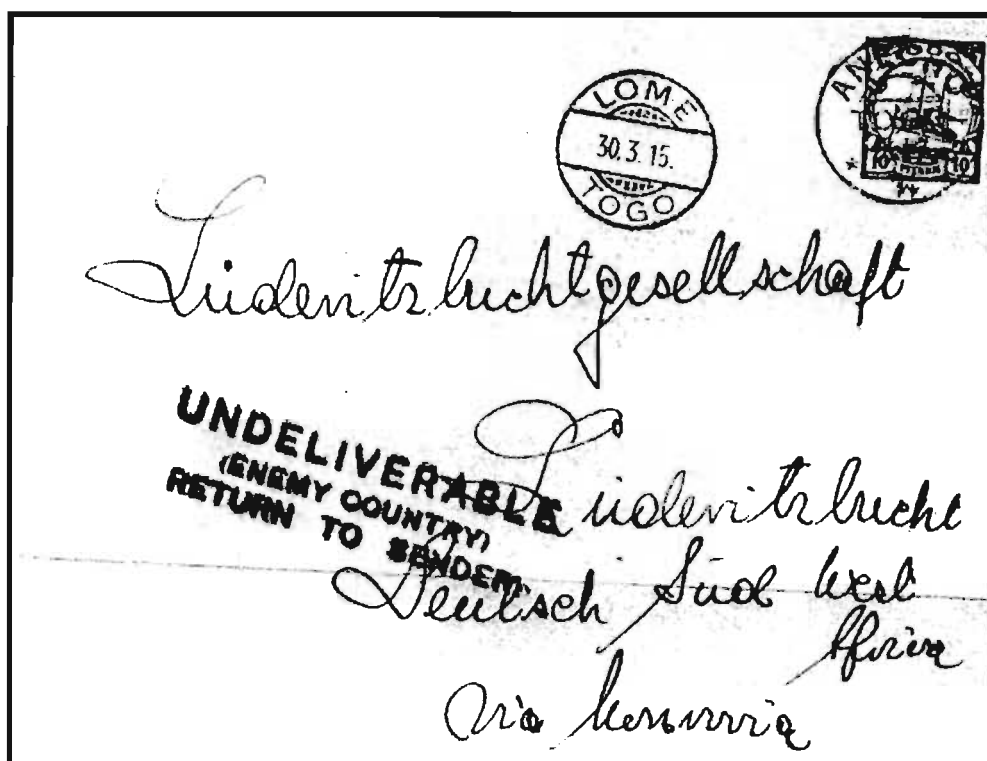 LOME
30.3.15.
TOGO
10 10
Lüderitzbuchtgesellschaft
UNDELIVERABLE
(ENEMY COUNTRY)
RETURN TO SENDER.
Lüderitzbucht
Deutsch Süd West
Africa
via